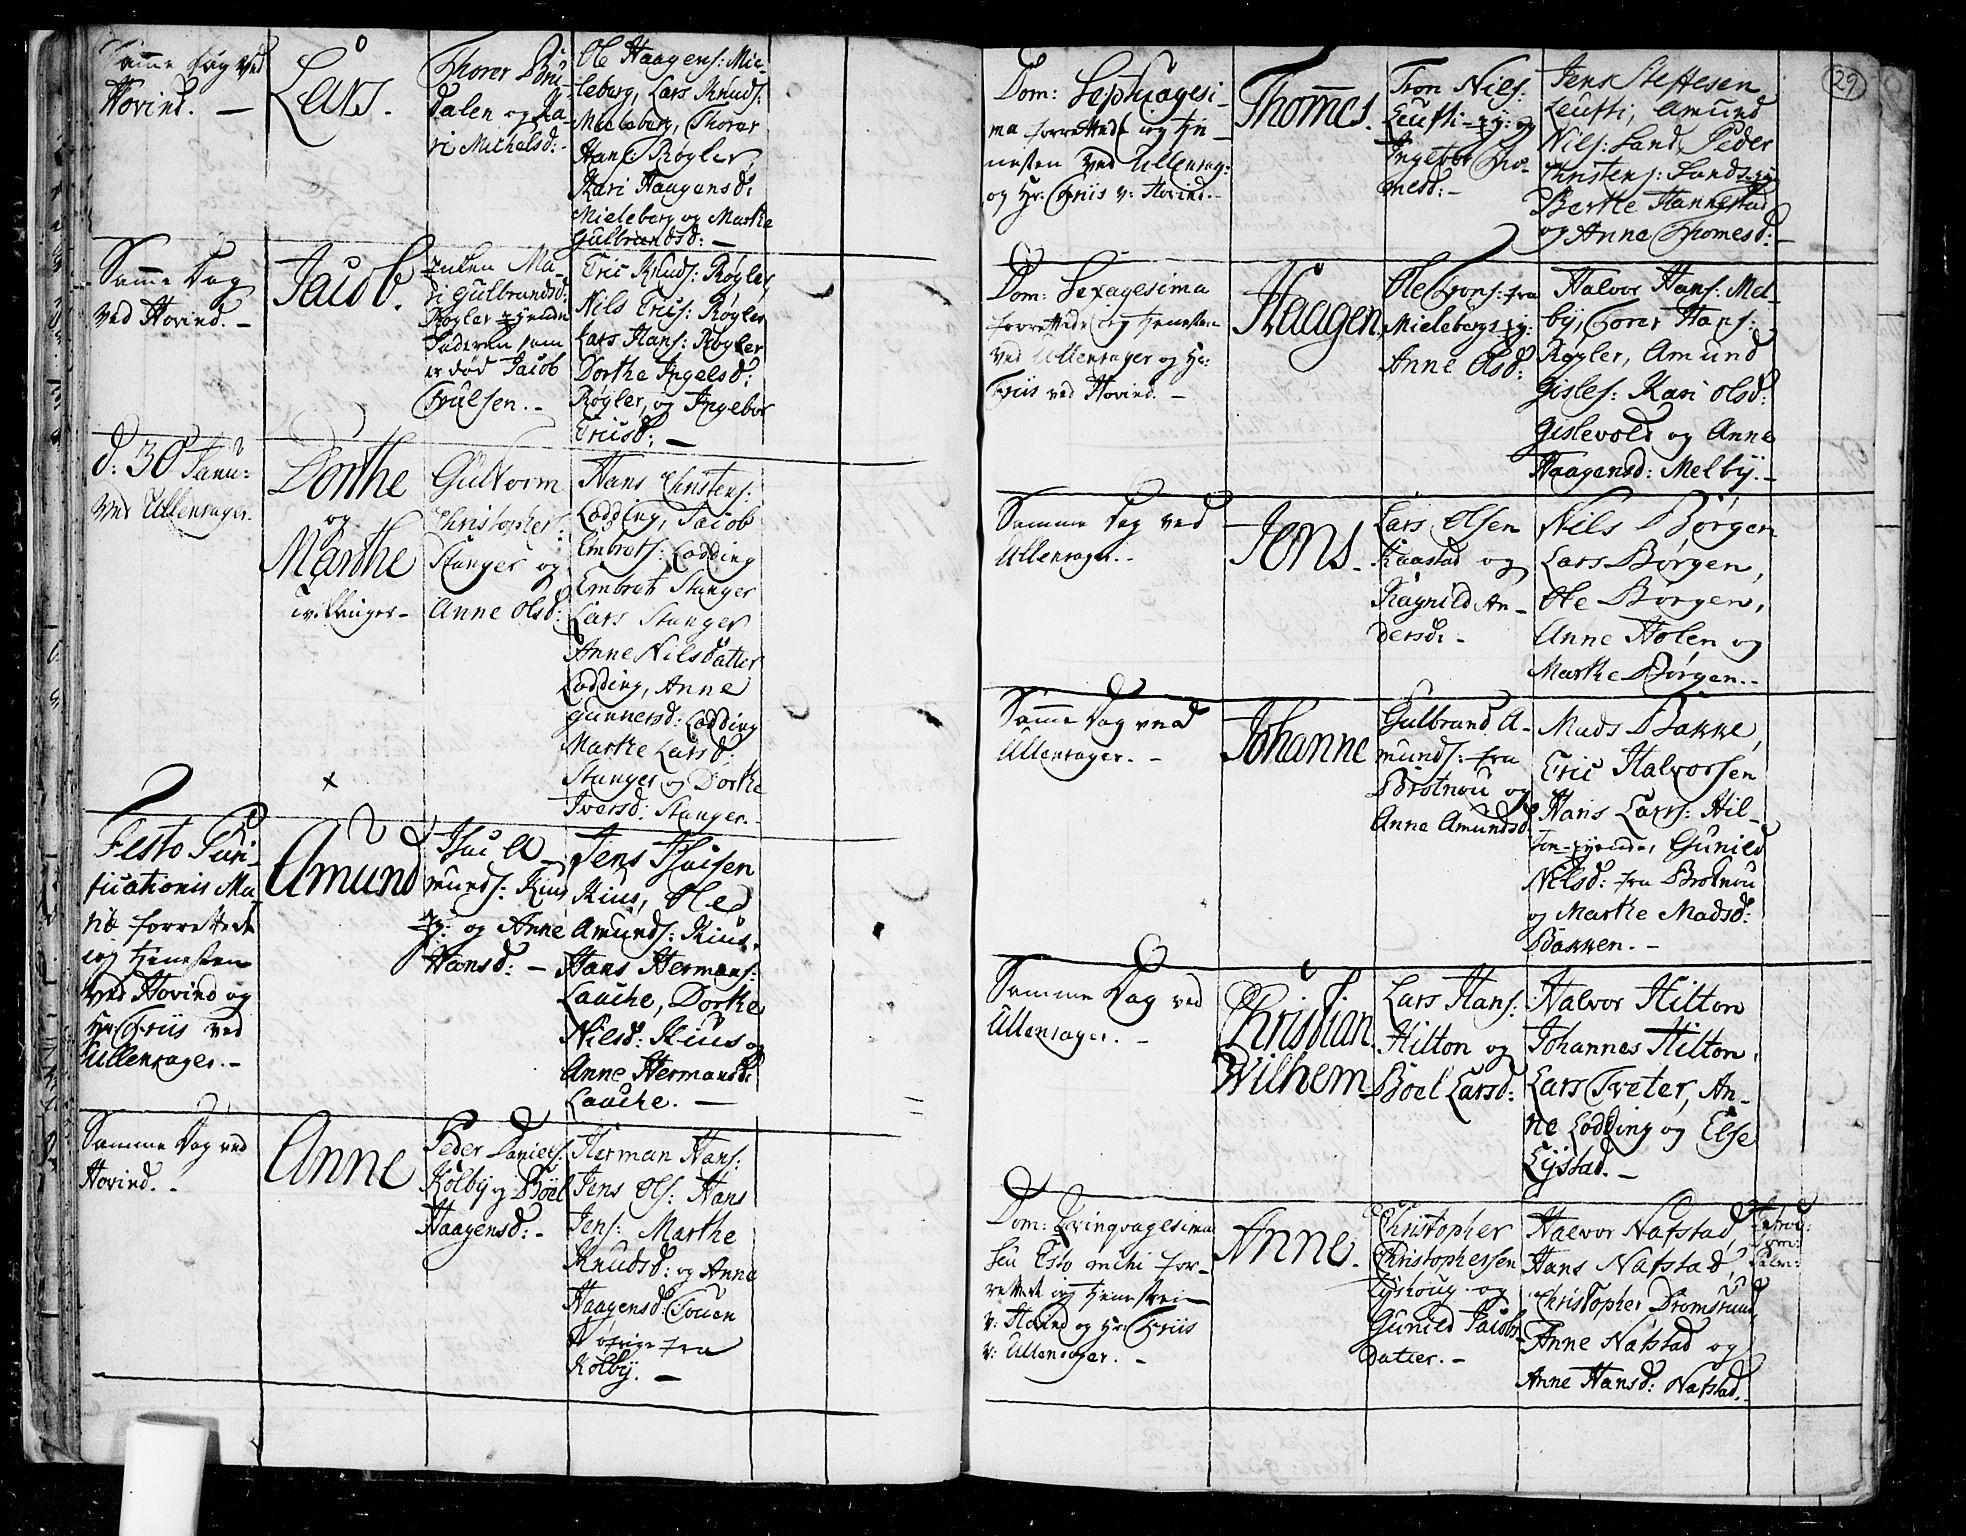 Samme Dag ved
Hovind. —
Lars.
Thorer Bru-
dalen og Ka-
ri Michelsd: -
Ole Haagens: Mie-
leberg, Lars Knuds:
Mieleberg, Thorer
Hans: Røgler,
Kari Haagensd:
Mieleberg og Marthe
Gulbrandsd: —
Samme Dag
ved Hovind. -
Jacob.
Enken Ma-
ri Gulbrandsd:
Røgler
Faderen som
er død Jacob
Truelsen. -
Eric Knuds: Røgler,
Nils Erics: Røgler
Lars Hans: Røgler
Dorthe Ingelsd:
Røgler, og Ingebor
Ericsd: —
d: 30 Janu:
ved Ullensager.
Dorthe
og
Marthe
tvillinger -
Guttorm
Christophers:
Stanger og
Anne Olsd:
Hans Christens:
Lodding, Jacob
Embrets: Lodding
Embret Stanger
Lars Stanger
Anne Nilsdatter
Lodding, Anne
Gunnersd: Lodding
Marthe Larsd:
Stanger og Dorthe
Iversd: Stanger. -
Festo Puri-
ficationis Ma-
riæ forrettede
ieg tienesten
ved Hovind og
Hr: Friis ved
Ullensager. -
Amund
Isac A-
munds: Kius
og Anne
Hansd: -
Jens Isacsen
Kius, Ole
Amunds: Kius,
Hans Hermans:
Lauche, Dorthe
Nilsd: Kius og
Anne Hermansd:
Lauche. —
Samme Dag ved
Hovind. -
Anne
Peder Daniels:
Kolby og Böel
Haagensd: -
Herman Hans:
Jens Ols: Hans
Jens: Marthe
Knudsd: og Anne
Haagensd: Touen
de øfrige fra
Kolby. —
29
Dom: Septuagesi-
ma forrettede ieg tie-
nesten ved Ullensag:
og Hr: Friis v: Hovind. -
Thomes.
Tron Nils:
og
Ingebor Tho-
mesd: -
Jens Steffesen
Amund
Nils: Sand, Peder
Christens:
Berthe Hannestad
og Anne Thomesd: -
Dom: Sexagesima
forrettede ieg tienesten
ved Ullensager og Hr:
Friis ved Hovind. -
Haagen,
Ole Trons: fra
Anne Olsd:
Halvor Hans: Mel-
by, Torer Hans:
Røgler, Amund
Gisles: Kari Olsd:
Gislevold og Anne
Haagensd: Melby. -
Samme Dag ved
Ullensager. -
Jens.
Lars Olsen
Kaastad og
Ragnild An-
dersd: -
Nils Børgen
Lars Børgen,
Ole Børgen,
Anne Holen og
Marthe Børgen. -
Samme Dag ved
Ullensager. -
Johanne
Gulbrand A-
munds: fra
Brotnou og
Anne Amundsd:
Mads Bakke,
Eric Halvorsen
Hans Lars: Hil-
ton Gunild
Nilsd: fra Brotnou
og Marthe Madsd:
Bakken. -
Samme Dag ved
Ullensager. -
Christian
Wilhem
Lars Hans:
Hilton og
Böel Larsd:
Halvor Hilton
Johannes Hilton,
Lars Tveter, An-
ne Lodding og Else
Lystad. -
Dom: Qvinqvagesima
seu Esto mihi for-
rettede ieg tienesten
v: Hovind og Hr: Friis
v: Ullensager. -
Anne.
Christopher
Christophersen
Lyshoug og
Gunild Jacobs-
datter. -
Halvor Nafstad,
Hans Nafstad,
Christopher Dromsrud,
Anne Nafstad og
Anne Hansd: Nafstad.